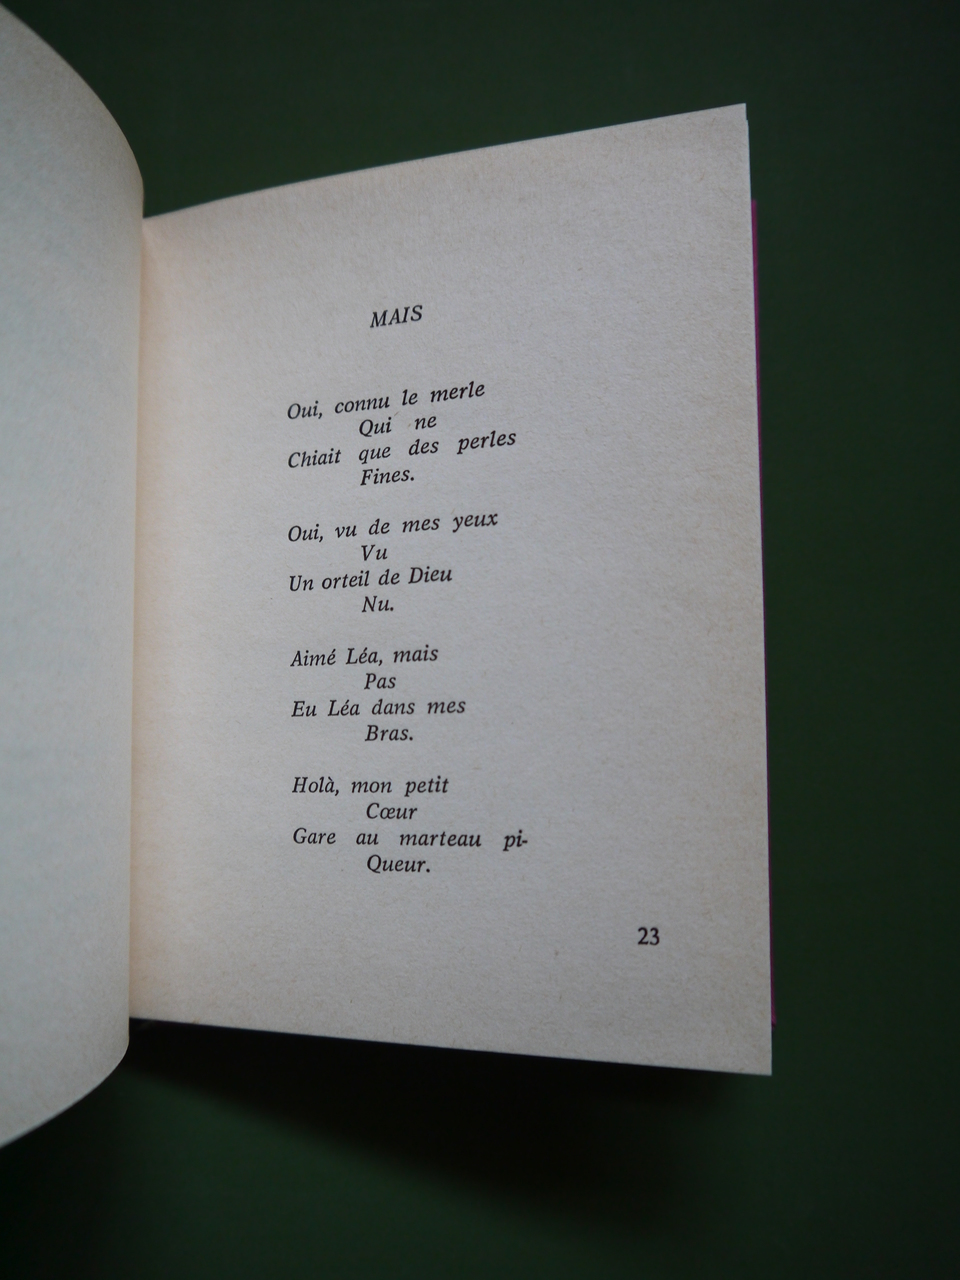 MAIS
Oui, connu le merle
Qui ne
Chiait que des perles
Fines.
Oui, vu de mes yeux
Vu
Un orteil de Dieu
Nu.
Aimé Léa, mais
Pas
Eu Léa dans mes
Bras.
Holà, mon petit
Cœur
Gare au marteau pi-
Queur.
23